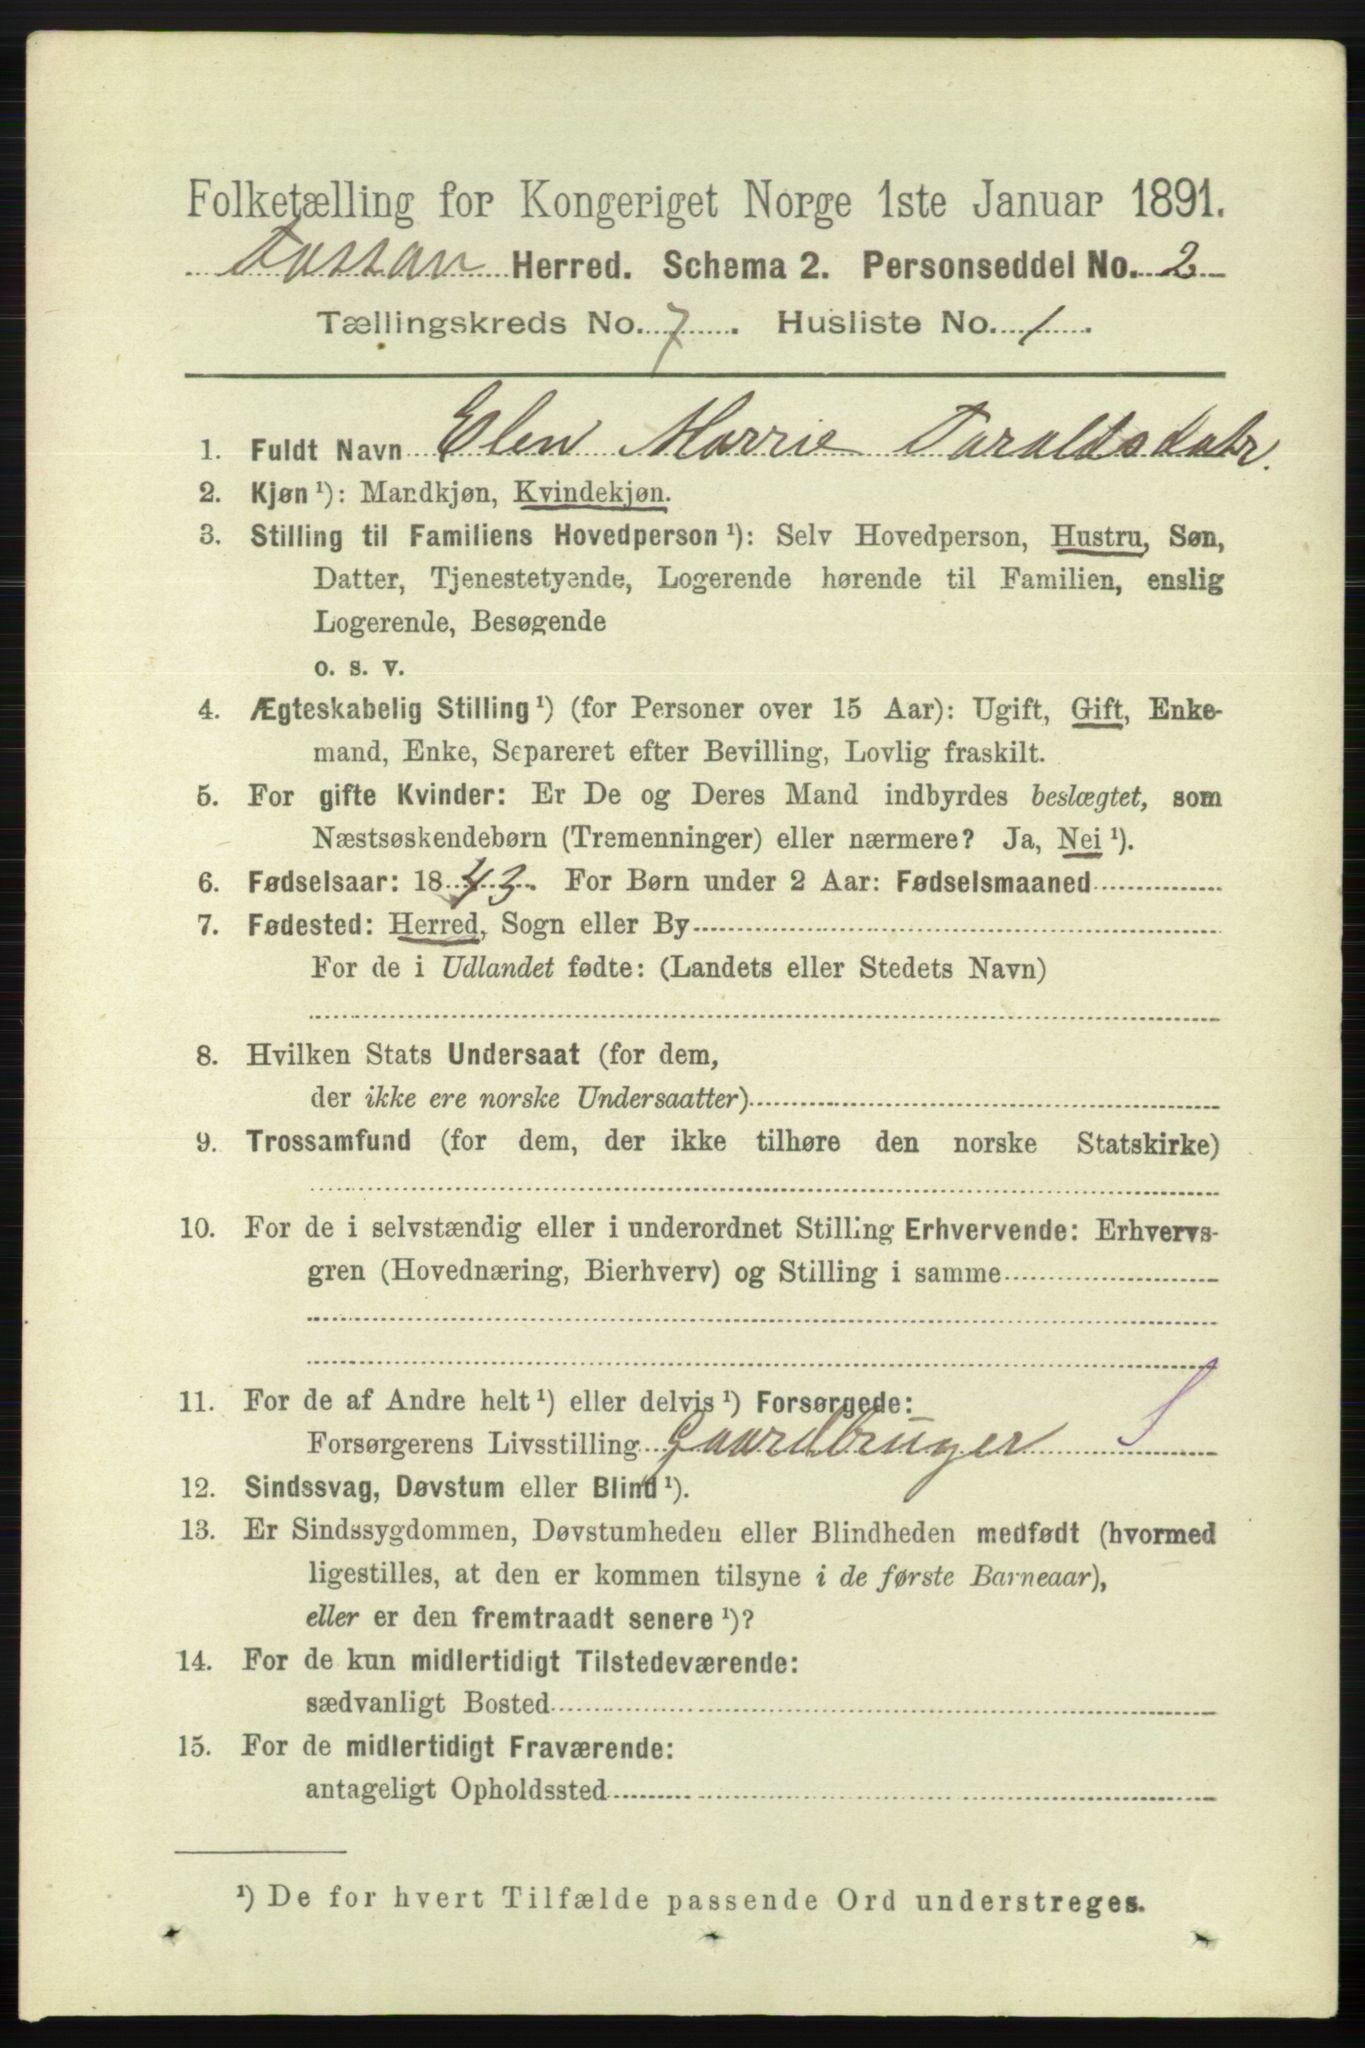 Folketælling for Kongeriget Norge 1ste Januar 1891.
Fossan Herred. Schema 2. Personseddel No. 2
Tællingskreds No. 7. Husliste No. 1.
1. Fuldt Navn Elen Marrie Taraldsdatr.
2. Kjøn ¹): Mandkjøn, Kvindekjøn.
3. Stilling til Familiens Hovedperson ¹): Selv Hovedperson, Hustru, Søn,
Datter, Tjenestetyende, Logerende hørende til Familien, enslig
Logerende, Besøgende
o. s. v.
4. Ægteskabelig Stilling ¹) (for Personer over 15 Aar): Ugift, Gift, Enke-
mand, Enke, Separeret efter Bevilling, Lovlig fraskilt.
5. For gifte Kvinder: Er De og Deres Mand indbyrdes beslægtet, som
Næstsøskendebørn (Tremenninger) eller nærmere? Ja, Nei ¹).
6. Fødselsaar: 1843. For Børn under 2 Aar: Fødselsmaaned
7. Fødested: Herred, Sogn eller By
For de i Udlandet fødte: (Landets eller Stedets Navn)
8. Hvilken Stats Undersaat (for dem,
der ikke ere norske Undersaatter)
9. Trossamfund (for dem, der ikke tilhøre den norske Statskirke)
10. For de i selvstændig eller i underordnet Stilling Erhvervende: Erhvervs-
gren (Hovednæring, Bierhverv) og Stilling i samme
11. For de af Andre helt ¹) eller delvis ¹) Forsørgede:
Forsørgerens Livsstilling Gaardbruger S
12. Sindssvag, Døvstum eller Blind ¹).
13. Er Sindssygdommen, Døvstumheden eller Blindheden medfødt (hvormed
ligestilles, at den er kommen tilsyne i de første Barneaar),
eller er den fremtraadt senere ¹)?
14. For de kun midlertidigt Tilstedeværende:
sædvanligt Bosted
15. For de midlertidigt Fraværende:
antageligt Opholdssted
¹) De for hvert Tilfælde passende Ord understreges.